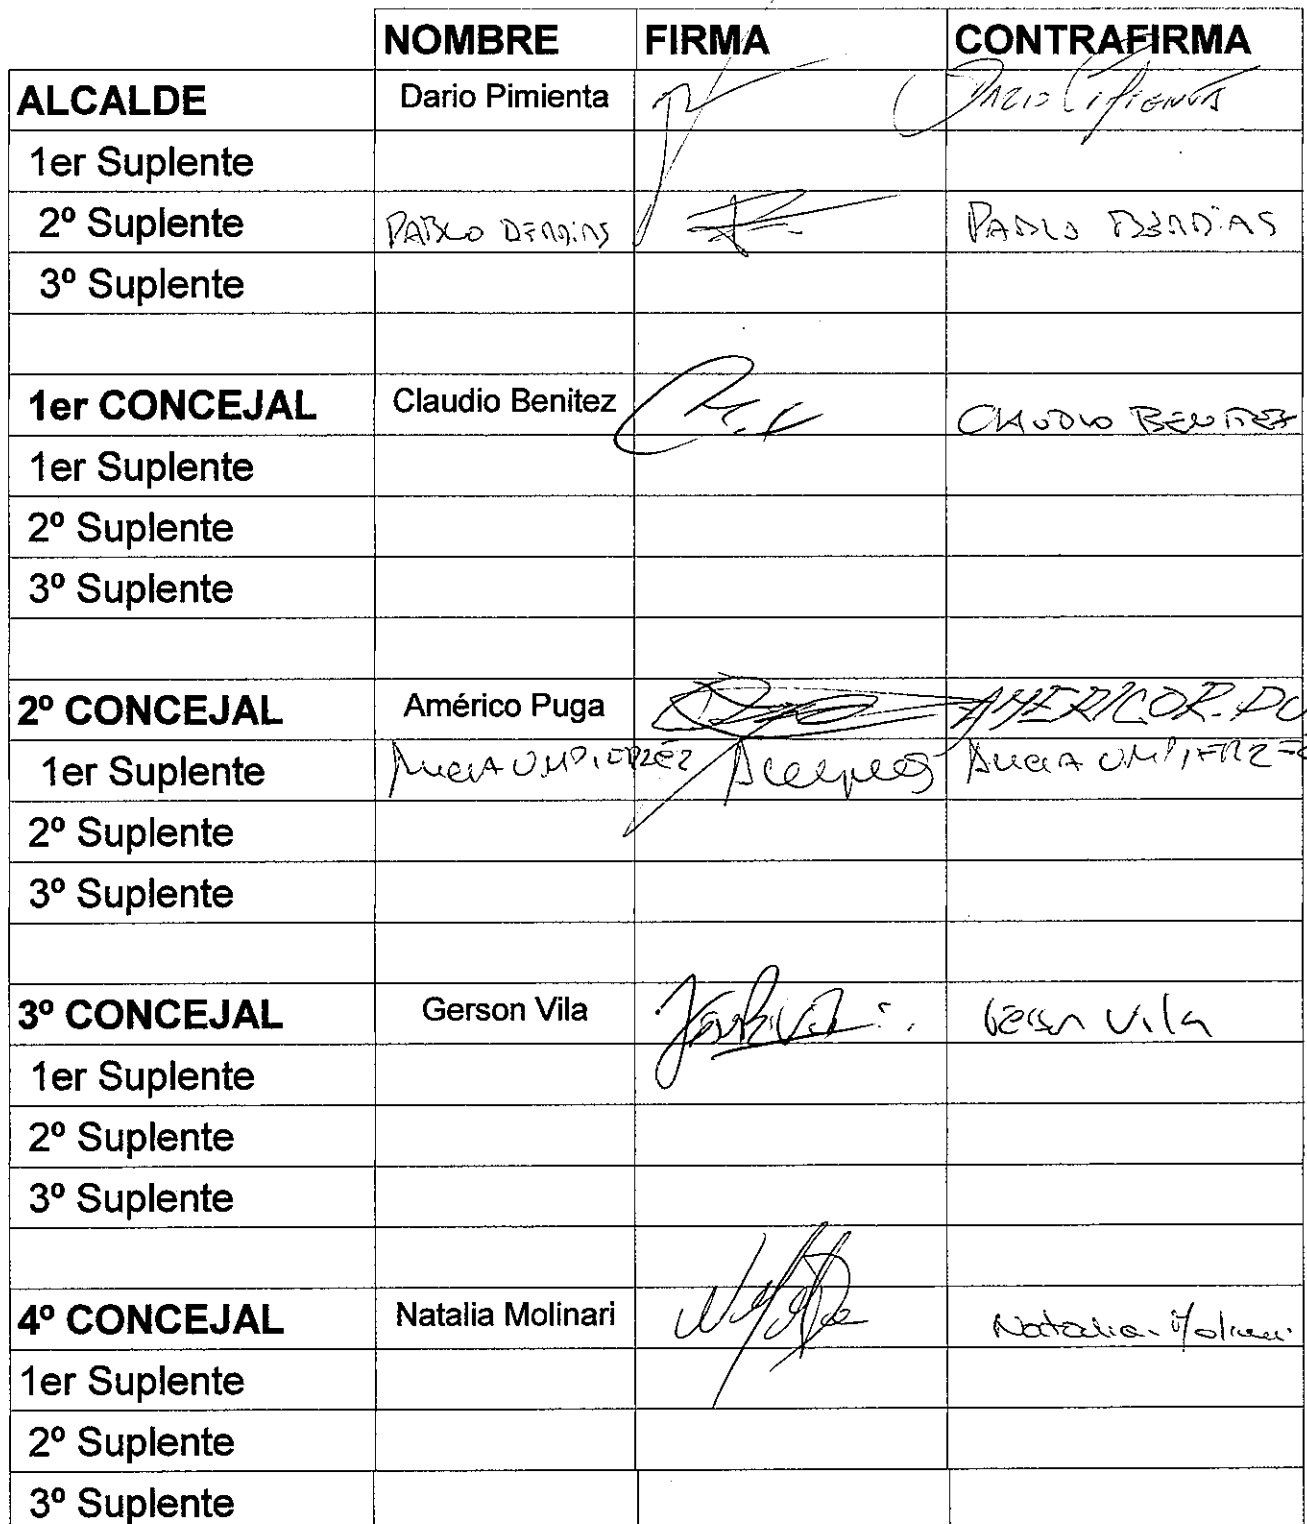 NOMBRE FIRMA CONTRAFIRMA
ALCALDE Dario Pimienta DARIO PIMIENTA
1er Suplente
2º Suplente PABLO PABLO
3º Suplente
1er CONCEJAL Claudio Benitez CLAUDIO BENITEZ
1er Suplente
2º Suplente
3º Suplente
2º CONCEJAL Américo Puga AMERICO R. PU
1er Suplente ALICIA UMPIERREZ ALICIA UMPIERREZ
2º Suplente
3º Suplente
3º CONCEJAL Gerson Vila Gerson Vila
1er Suplente
2º Suplente
3º Suplente
4º CONCEJAL Natalia Molinari Natalia Molinari
1er Suplente
2º Suplente
3º Suplente